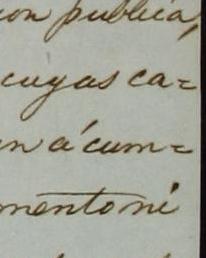 ion publica,
cuyas ca=
n á cum=
mento ni